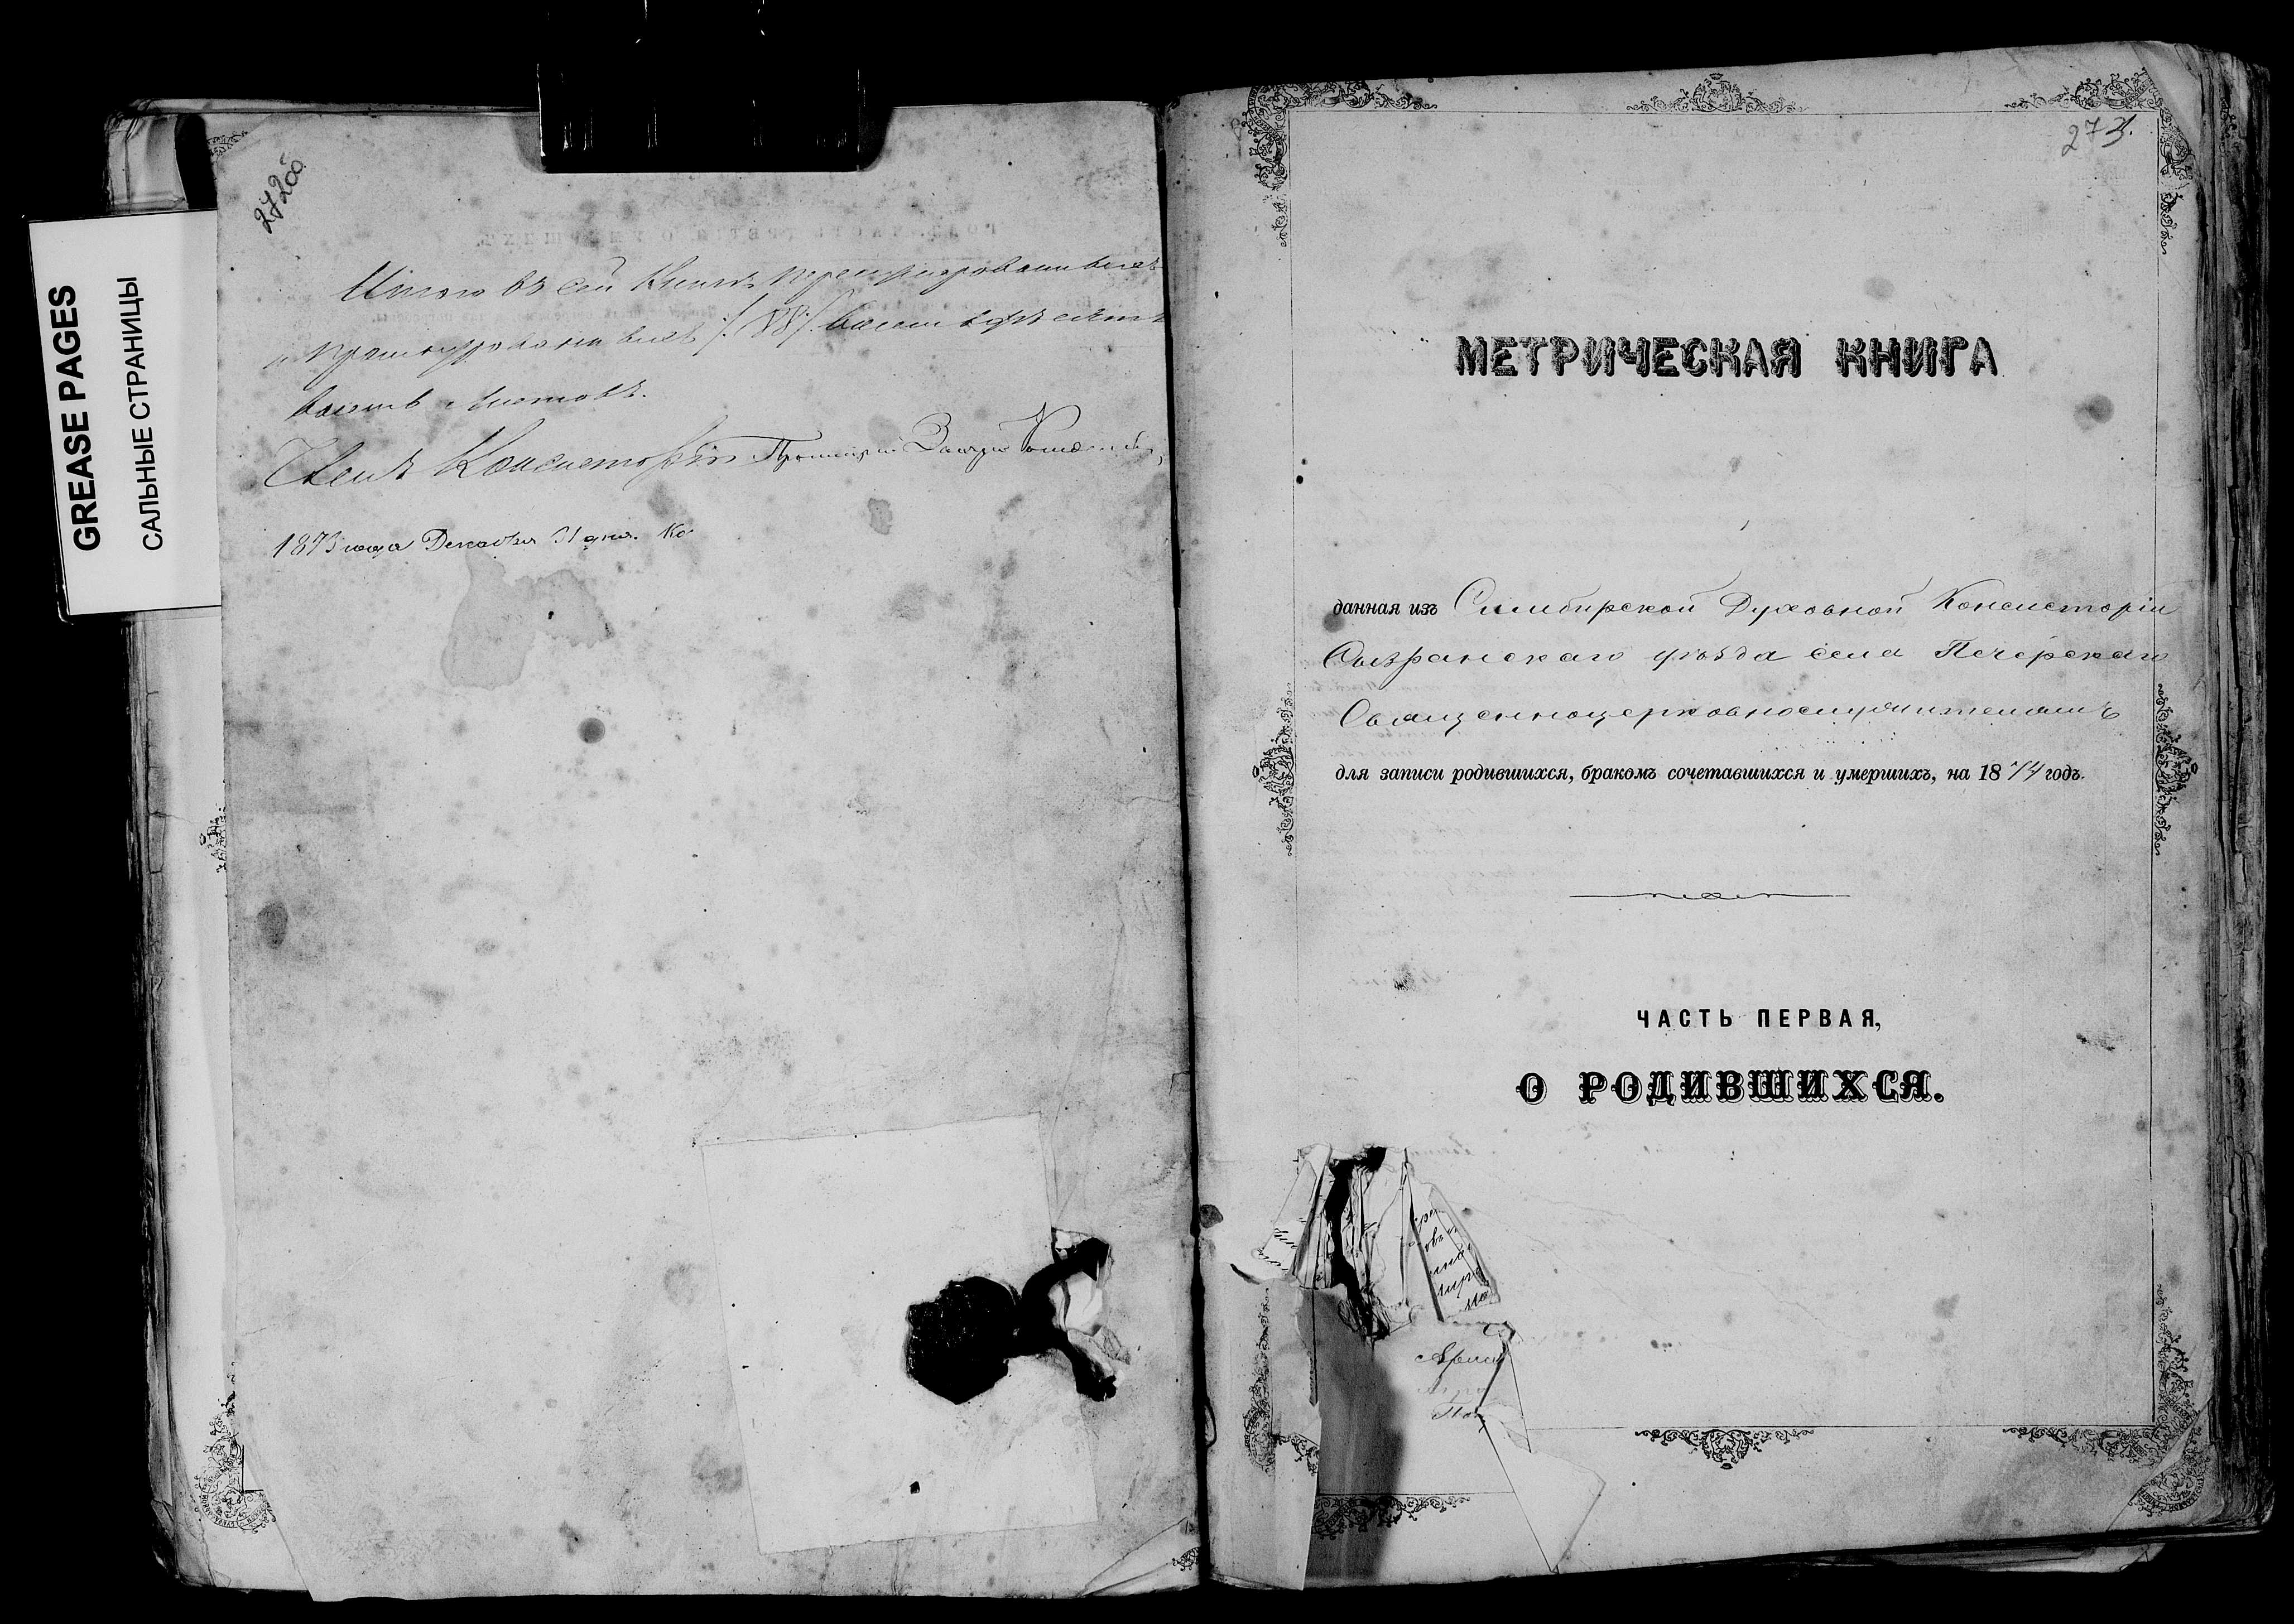 GREASE PAGES
САЛЬНЫЕ СТРАНИЦЫ
272об
Итого въ сей Книгѣ перенумерованныхъ
и прошнурованныхъ /88/ восемьдесятъ
восемь листовъ.
Членъ Консисторіи Протоіерей
1873 года Декабря 31 дня.
273.
МЕТРИЧЕСКАЯ КНИГА
данная изъ Симбирской Духовной Консисторіи
Сызранскаго уѣзда села Печерскаго
Священноцерковнослужителямъ
для записи родившихся, бракомъ сочетавшихся и умершихъ, на 1874 годъ.
ЧАСТЬ ПЕРВАЯ,
О РОДИВШИХСЯ.